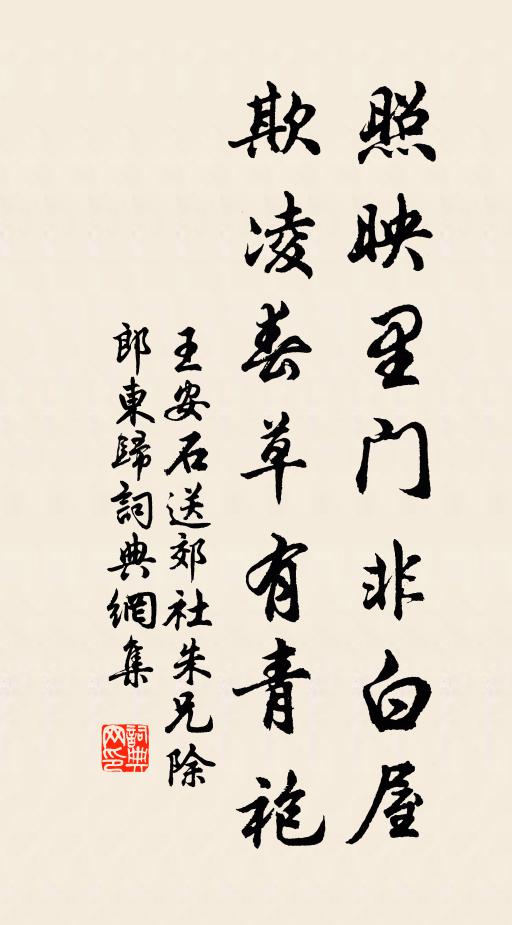 照映里门非白屋
欺凌春草有青袍
王安石送郊社朱兄除
郎東歸詞典網集
詞典
网印